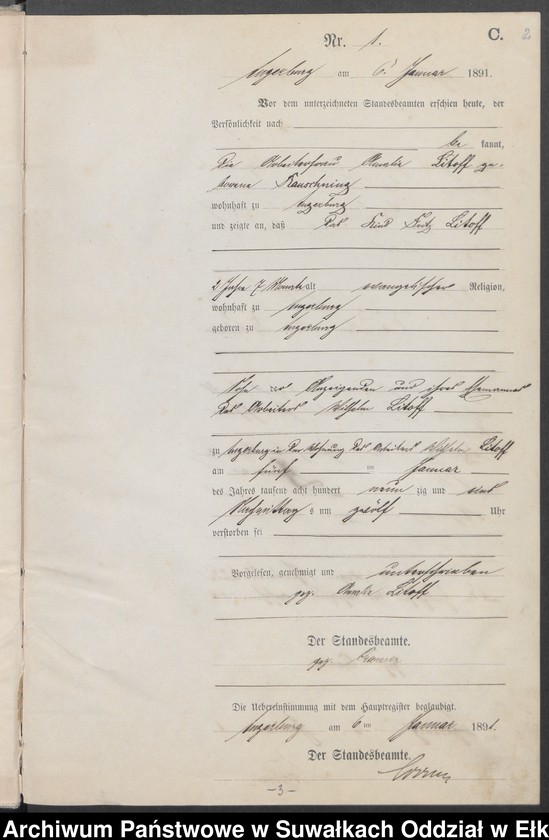 C. 2
Nr. 1.
Angerburg am 6. Januar 1891.
Vor dem unterzeichneten Standesbeamten erschien heute, der
Persönlichkeit nach
be kannt,
die Arbeiterfrau Amalie Litoff ge-
borene Rauschning
wohnhaft zu Angerburg
und zeigte an, daß das Kind Fritz Litoff
2 Jahre 7 Monate alt evangelischer Religion,
wohnhaft zu Angerburg
geboren zu Angerburg
Sohn der Anzeigenden und ihres Ehemannes
des Arbeiters Wilhelm Litoff
zu Angerburg in der Wohnung des Arbeiters Wilhelm Litoff
am fünften Januar
des Jahres tausend acht hundert neun zig und eins
Nachmittag s um zwölf Uhr
verstorben sei
Vorgelesen, genehmigt und unterschrieben
gez. Amalie Litoff
Der Standesbeamte.
gez.
Die Uebereinstimmung mit dem Hauptregister beglaubigt.
Angerburg am 6ten Januar 1891.
Der Standesbeamte.
-3-
Archiwum Państwowe w Suwałkach Oddział w Ełk